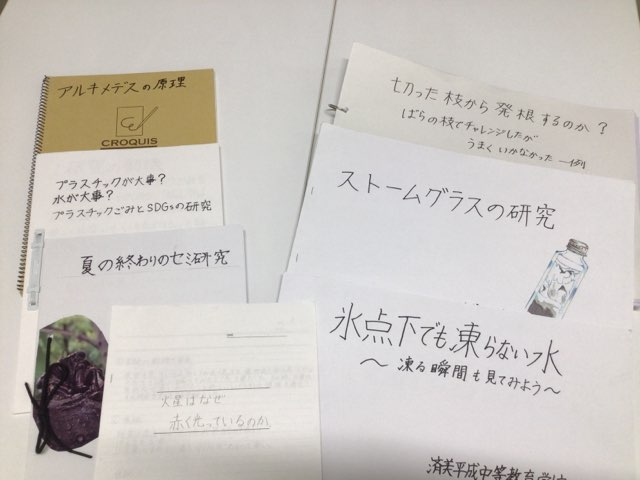 アルキメデスの原理
CROQUIS
プラスチックが大事?
水が大事?
プラスチックごみとSDGsの研究
夏の終わりのセミ研究
火星はなぜ
赤く光っているのか
切った枝から発根するのか?
ばらの枝でチャレンジしたが
うまくいかなかった一例
ストームグラスの研究
氷点下でも凍らない水
～凍る瞬間も見てみよう～
済美平成中等教育学校